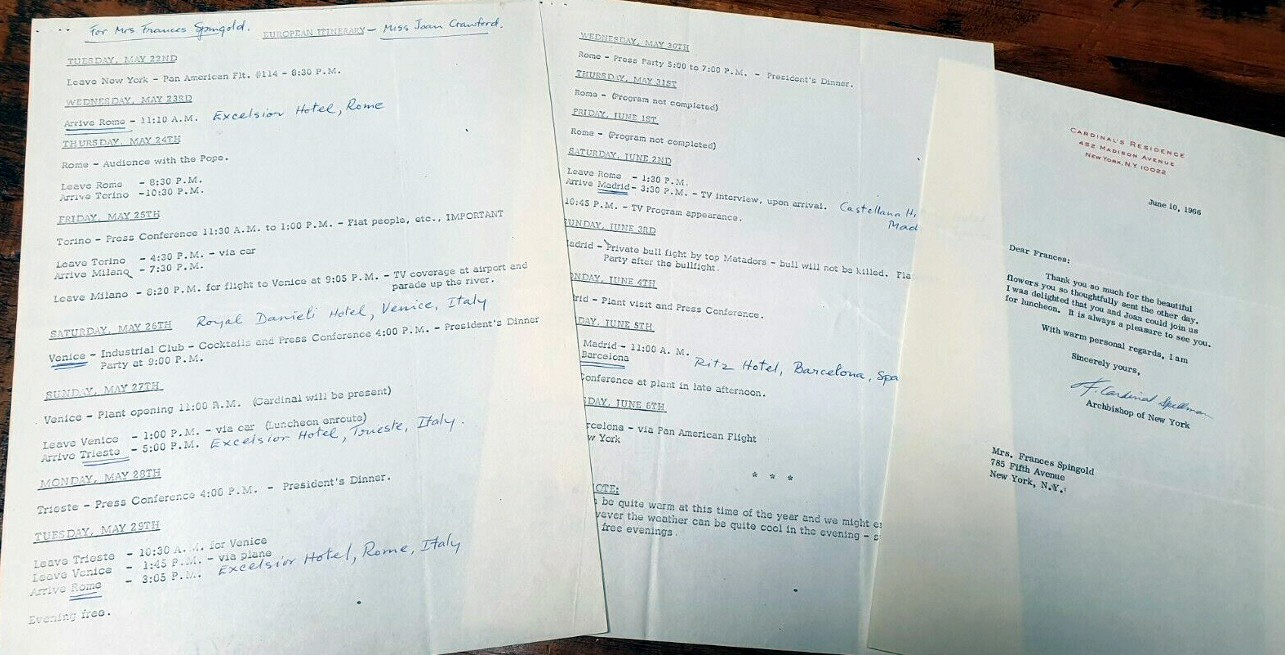 For Mrs. Frances Spingold. EUROPEAN ITINERARY - Miss Joan Crawford.
TUESDAY, MAY 22ND
Leave New York - Pan American Flt. #114 - 8:30 P.M.
WEDNESDAY, MAY 23RD
Arrive Rome - 11:10 A.M. Excelsior Hotel, Rome
THURSDAY, MAY 24TH
Rome - Audience with the Pope.
Leave Rome - 8:30 P.M.
Arrive Torino - 10:30 P.M.
FRIDAY, MAY 25TH
Torino - Press Conference 11:30 A.M. to 1:00 P.M. - Fiat people, etc., IMPORTANT
Leave Torino - 4:30 P.M. - via car
Arrive Milano - 7:30 P.M.
Leave Milano - 8:20 P.M. for flight to Venice at 9:05 P.M. - TV coverage at airport and
parade up the river.
SATURDAY, MAY 26TH Royal Danieli Hotel, Venice, Italy
Venice - Industrial Club - Cocktails and Press Conference 4:00 P.M. - President's Dinner
Party at 9:00 P.M.
SUNDAY, MAY 27TH
Venice - Plant opening 11:00 A.M. (Cardinal will be present)
Leave Venice - 1:00 P.M. - via car (Luncheon enroute)
Arrive Trieste - 5:00 P.M. Excelsior Hotel, Trieste, Italy.
MONDAY, MAY 28TH
Trieste - Press Conference 4:00 P.M. - President's Dinner.
TUESDAY, MAY 29TH
Leave Trieste - 10:30 A.M. for Venice
Leave Venice - 1:45 P.M. - via plane
Arrive Rome - 3:05 P.M. Excelsior Hotel, Rome, Italy
Evening free.
WEDNESDAY, MAY 30TH
Rome - Press Party 5:00 to 7:00 P.M. - President's Dinner.
THURSDAY, MAY 31ST
Rome - (Program not completed)
FRIDAY, JUNE 1ST
Rome - (Program not completed)
SATURDAY, JUNE 2ND
Leave Rome - 1:30 P.M.
Arrive Madrid - 3:30 P.M. - TV interview, upon arrival. Castellana H,
Mad
10:45 P.M. - TV Program appearance.
SUNDAY, JUNE 3RD
adrid - Private bull fight by top Matadors - bull will not be killed. Fla
Party after the bullfight.
NDAY, JUNE 4TH
rid - Plant visit and Press Conference.
DAY, JUNE 5TH
Madrid - 11:00 A. M.
Barcelona Ritz Hotel, Barcelona, Spa
onference at plant in late afternoon.
DAY, JUNE 6TH
rcelona - via Pan American Flight
w York
* * *
OTE:
be quite warm at this time of the year and we might
ever the weather can be quite cool in the evening -
free evenings.
CARDINAL'S RESIDENCE
452 MADISON AVENUE
NEW YORK, N.Y. 10022
June 10, 1966
Dear Frances:
Thank you so much for the beautiful
flowers you so thoughtfully sent the other day.
I was delighted that you and Joan could join us
for luncheon. It is always a pleasure to see you.
With warm personal regards, I am
Sincerely yours,
F. Cardinal Spellman
Archbishop of New York
Mrs. Frances Spingold
785 Fifth Avenue
New York, N.Y.